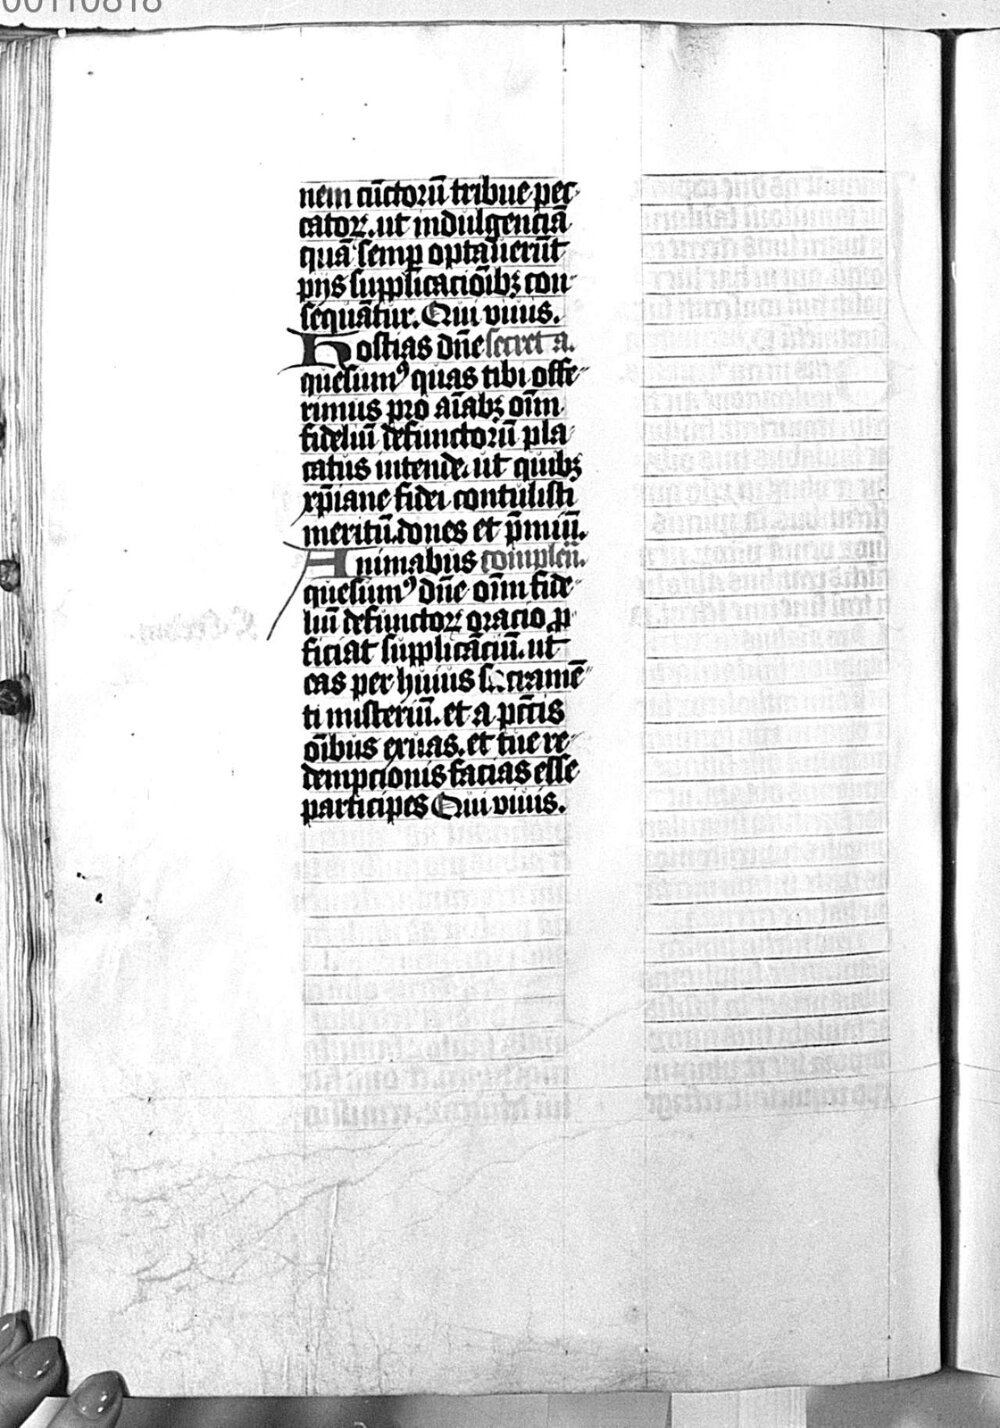 00110818
nem cūctorū tribue pec
catoꝝ. ut indulgenciā
quā semꝑ optauerūt
pijs supplicacōibꝫ con
sequātur. Qui viuis.
Hostias dn̄e secreta.
quesumꝰ quas tibi offe
rimus pro aīabꝫ oīm
fideliū defunctorū pla
catus intende. ut quibꝫ
xp̄iane fidei contulisti
meritū. dones et p̄miū.
Animabus complen̄.
quesumꝰ dn̄e oīm fide
liū defunctoꝝ oracio ꝓ
ficiat supplicāciū. ut
eas per huius sacramē
ti misteriū. et a pcc̄tis
oībus exuas. et tue re
dempcionis facias esse
participes Qui viuis.